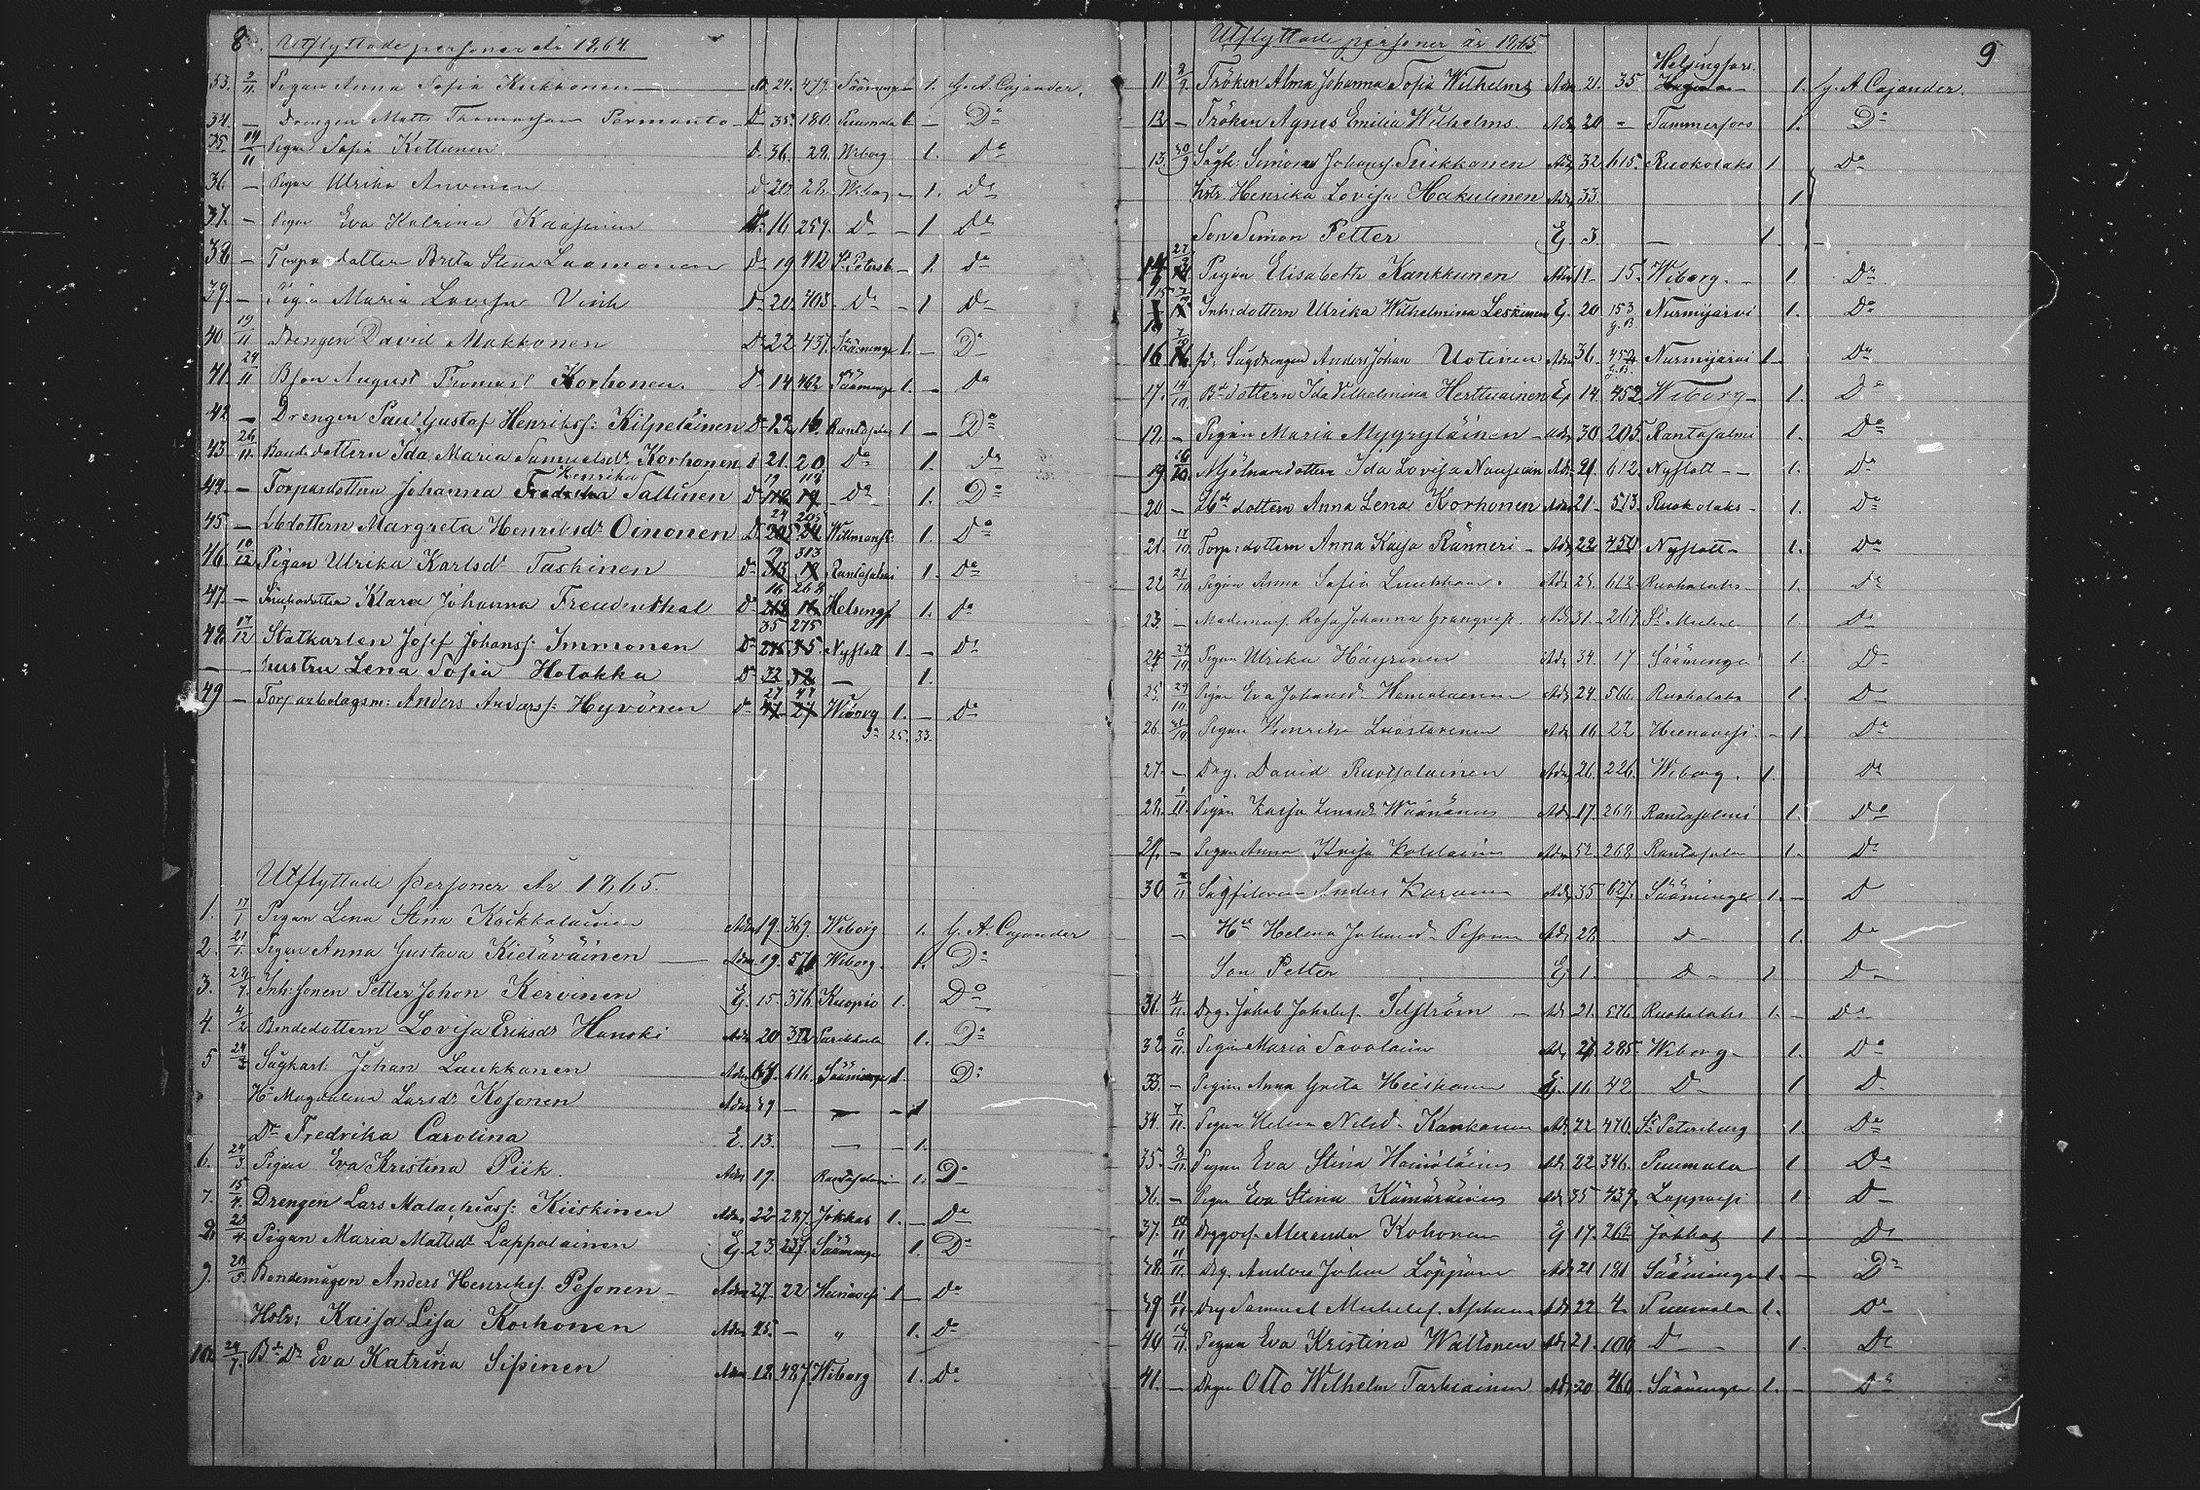 8. Utflyttade personer År 1864.
33. 9/11 Pigan Anna Sofia Kukkonen D:o 24. 477. Sääminge 1. G. A. Cajander.
34. — Drengen Matts Thomasson Parmanto D:o 35. 180. Puumala 1. — D:o
35. 14/11 Pigan Sofia Kettunen D:o 36. 28. Wiborg 1. D:o
36 — Pigan Ulrika Anvenen D:o 20. 28. Wiborg — 1. D:o
37. — Pigan Eva Katrina Kaasinen D:o 16 259. D:o — 1 D:o
38 — Torparedotter Brita Stina Laamanen D:o 19 412 St Petersb. — 1. D:o
39. — Pigan Maria Lovisa Vink D:o 20. 403. D:o — 1 D:o
40 19/11 Drengen David Makkonen D:o 22 437. Sääminge 1. — D:o
41. 24/11 Bson August Thomass: Korhonen. D:o 14 462 Sääminge 1. — D:o
42. — Drengen Paul Gustaf Henrikss: Kilpeläinen D:o 16. Rantasalmi 1 — D:o
43 26/11. Bondedottern Ida Maria Samuelsd:r Korhonen D:o 21. 20. D:o 1. D:o
Henrika 19 112
44. — Torparedottern Johanna Fredrika Tallinen D:o 112 19 — D:o 1. D:o
24 205
45. — Lösdottern Margreta Henriksd:r Oinonen D:o 205 24 Willmanst: 1. D:o
19 313
46. 10/12 Pigan Ulrika Karlsd:r Taskinen D:o 313 19 Rantasalmi 1. D:o
16 268
47. — Klara Johanna Freudenthal D:o 268 16 Helsingf 1. D:o
35 275
48. 17/12 Statkarlen Josef Johanss: Immonen D:o 275 35. Nyslott 1. — D:o
— — hustru Lena Sofia Hotokka D:o 32 — 1.
27 47
49 — Torp. anbolagsm: Anders Anderss: Hyvönen D:o 47 27 Wiborg 1. — D:o
25. 33.
Utflyttade personer År 1865.
1. 17/1 Pigan Lena Stina Kaikkalainen Adm 19. 369. Wiborg 1. G. A. Cajander
2. 21/1. Pigan Anna Gustava Kietäväinen Adm. 19. 571 Wiborg. 1. D:o
3. 24/1. Inh: sonen Petter Johan Kervinen Ej. 15. 376. Kuopio 1. D:o
4. 4/2 Bondedottern Lovisa Eriksd:r Hanski Adm 20 372 Parikkala 1. D:o
5 24/3 Sågkarl. Johan Laukkanen Adm 67. 616. Sääminge 1. D:o
H:u Magdalena Larsd:r Kosonen Adm 49 — — — 1
D:r Fredrika Carolina E. 13. — — 1.
6. 24/3. Pigan Eva Kristina Piik. Adm 17. Rantasalmi — 1. D:o
7. 15/4. Drengen Lars Malachiass: Kiiskinen Adm 22 287. Jokkas 1. — D:o
8. 23/4. Pigan Maria Mattsd:r Lappalainen Ej. 23. 237. Sääminge 1. D:o
9. 20/5. Bondemågen Anders Henrikss. Pesonen — Adm 27. 22 Heinävesi 1 — D:o
Hstr: Kaisa Lisa Korhonen Adm 25. — " 1. D:o
10. 29/7. B:de D:r Eva Katrina Sissinen Adm 18 487. Wiborg 1. D:o
Utflyttade personer År 1865. 9
Helsingfors.
11. 2/9 Fröken Alma Johanna Sofia Wilhelms Adm. 21. 35. 1. G. A. Cajander.
12 — Fröken Agnes Emilia Wilhelms. Adm 20 — Tammerfors 1. D:o
13. 30/9 Sågk: Simon Johanss Suikkanen Adm 32 615. Ruokolaks 1 D:o
hstr Henrika Lovisa Hakulinen Adm 33. 1
Son Simon Petter Ej. 3. — 1. —
14 Pigan Elisabeth Kankkunen Adm 15. Wiborg. — 1. D:o
15 Inhsdottern Ulrika Wilhelmina Leskinen Ej. 20 153 Nurmijärvi 1. D:o
16 fd. Sågdrengen Anders Johan Uotinen Adm 36. 452 Nurmijärvi 1 D:o
17. 14/10. B:de dottern Ida Vilhelmina Herttuainen Ej 14. 452. Wiborg — 1. D:o
18. — Pigan Maria Myyryläinen — Adm 30. 205. Rantasalmi 1. D:o
19. 16/10 Mjölnardottern Ida Lovisa Nousiain Adm 21. 612. Nyslott — 1. D:o
20 — B:de dottern Anna Lena Korhonen Adm 21 — 513. Ruokolaks — 1. D:o
21. 17/10 Torp. dottern Anna Kaisa Ränneri — Adm 22 450 Nyslott — 1. D:o
22 21/10 Pigan Anna Sofia Luukkonen. Adm 25. 612 Ruokolaks — 1. D:o
23. — Mademois. Rosa Johanna Granqvist. Adm 31. 267 St Michel 1. D:o
24 Pigan Ulrika Häyrinen Adm 34. 17 Sääminge 1. D:o
25. 29/10 Pigan Eva Johansd:r Heinolainen Adm 24. 566. Ruokolaks 1. D:o
26. Pigan Henrika Luostarinen Adm. 16 22 Heinävesi. — 1. D:o
27. — Drg. David Ruotsalainen Adm 26. 226. Wiborg. 1. D:o
28. 1/11. Pigan Kaisa Väänänen Adm 17. 264 Rantasalmi 1. D:o
29. — Pigan Anna Kaisa Adm 52. 268 Rantasalm 1. D:o
30 Sågfilaren Anders Karvinen Adm 35 627. Sääminge 1. — D:o
— H:u Helena Johansd:r Pesonen Adm 28. D:o — 1. D:o
Son Petter Ej 1. D:o — 1. D:o
31. 4/11. Drg. Jakob Jakobss. Silström — Adm 21. 576 Ruokolaks 1. — D:o
32. 6/11. Pigan Maria Savolain Adm 21 285. Wiborg — 1. D:o
33. — Pigan Anna Greta Hiiskanen Ej. 16 42 D:o — 1 D:o
34. 7/11. Pigan Helena Nilsd:r Kankanen Adm. 22 470. St Petersburg 1. D:o
35. 9/11. Pigan Eva Stina Heinoläinen Adm 22 346. Puumala 1 D:o
36. — Pigan Eva Stina Kämäräinen Adm 35 439. Lappvesi 1. D:o
37. 10/11 Alexander Kohonen Ej 17. 262 Jokkas 1 — D:o
38. 11/11. Drg. Anders Johan Löppönen Adm 21 181 Sääminge 1. — D:o
39 11/11 Drg Samuel Michelss. Adm 22 4 Puumala 1. D:o
40 14/11 Pigan Eva Kristina Waltonen Adm 21. 106 D:o — 1. D:o
41. — Drgn Otto Wilhelm Tarkiainen Adm 20 460. Sääminge 1. — D:o